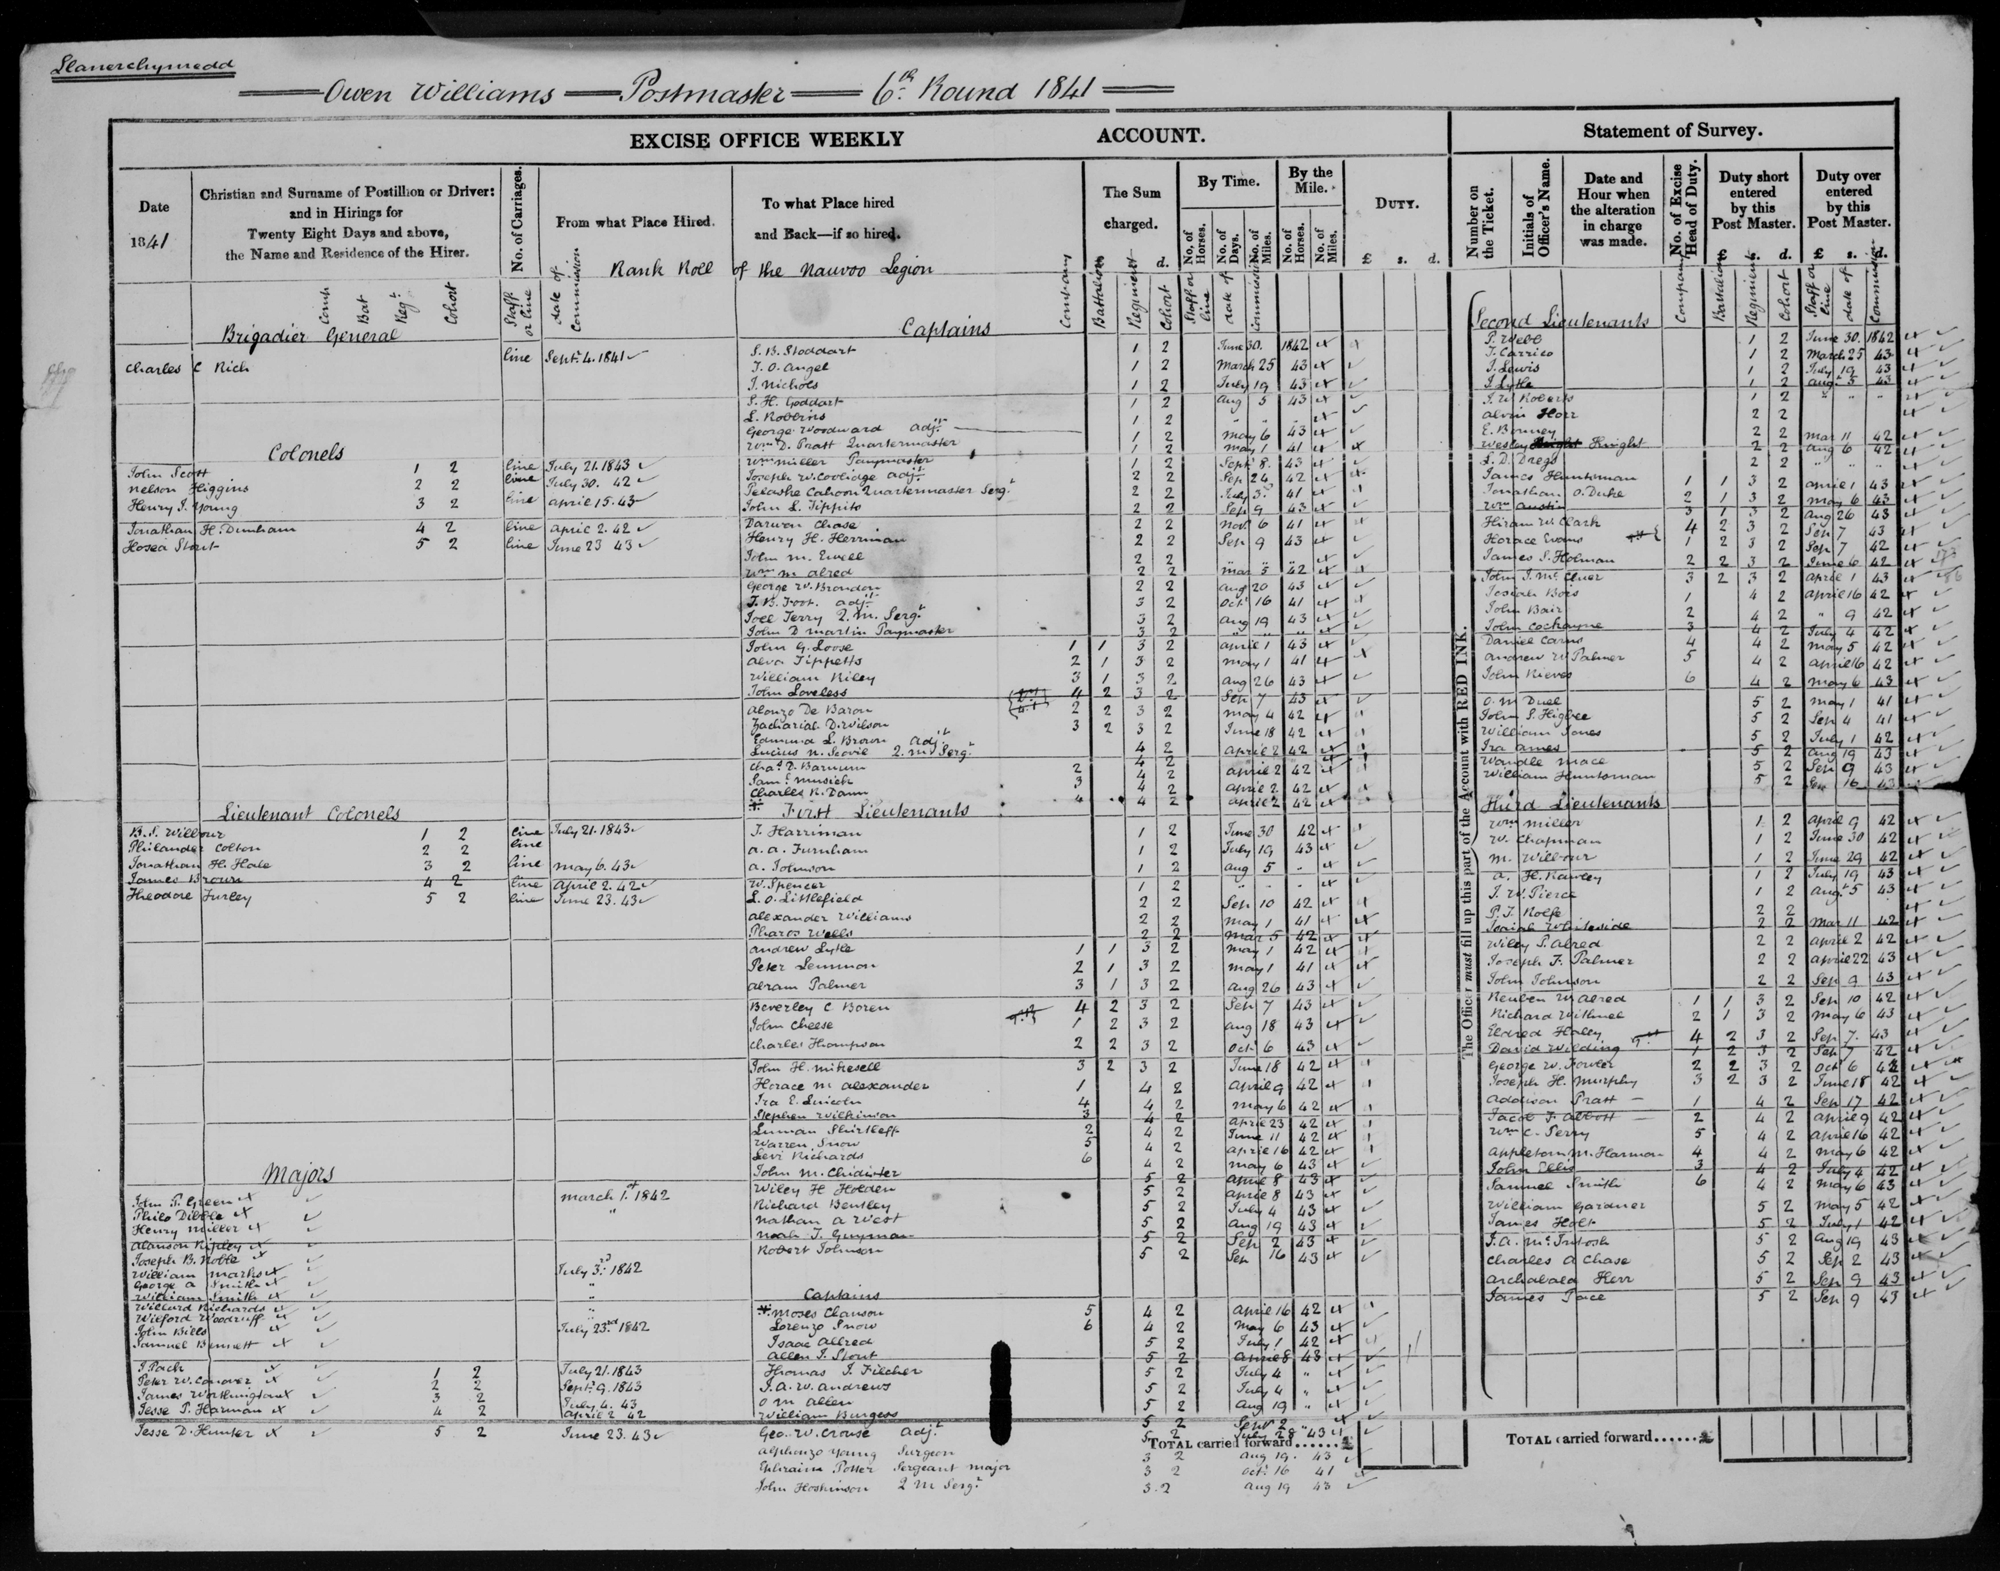 Llanerchymedd
Owen Williams — Postmaster — 6th Round 1841
EXCISE OFFICE WEEKLY ACCOUNT.
Statement of Survey.
Date 1841
Christian and Surname of Postillion or Driver: and in Hirings for Twenty Eight Days and above, the Name and Residence of the Hirer.
No. of Carriages.
From what Place Hired.
To what Place hired and Back—if so hired.
The Sum charged.
d.
By Time.
No. of Horses.
No. of Days.
No. of Miles.
By the Mile.
No. of Horses.
No. of Miles.
DUTY.
£ s. d.
Number on the Ticket.
Initials of Officer's Name.
Date and Hour when the alteration in charge was made.
No. of Excise Head of Duty.
Duty short entered by this Post Master.
£ d.
Duty over entered by this Post Master.
£ s. d.
Rank Roll of the Nauvoo Legion
Comp Bat Regt Cohort
Staff or Line
Date of Commission
Brigadier General
Charles C Rich line Sept. 4. 1841
Colonels
John Scott 1 2 line July 21. 1843
Nelson Higgins 2 2 line July 30. 42
Henry J. Young 3 2 line April 15. 43
Jonathan H. Dunham 4 2 line April 2. 42
Hosea Stout 5 2 line June 23 43
Lieutenant Colonels
B. S. Wilbour 1 2 line July 21. 1843
Philander Colton 2 2 line
Jonathan H. Hale 3 2 line May 6. 43
James Brown 4 2 line April 2. 42
Theodore Turley 5 2 line June 23. 43
Majors
John P. Green March 1st 1842
Philo Dibble "
Henry Miller
Alanson Ripley
Joseph B. Noble
William Marks July 3d 1842
George A Smith "
William Smith
Willard Richards "
Wilford Woodruff
John Bills July 23rd 1842
Samuel Bennett
J. Pack 1 2 July 21. 1843
Peter W. Conover 2 2 Sept. 9. 1843
James Worthington 3 2 July 4. 43
Jesse P. Harman 4 2 April 2 42
Jesse D. Hunter 5 2 June 23. 43
Captains
Company Battalion Regiment Cohort Staff or line Date of Commission
S. B. Stoddart 1 2 June 30. 1842
J. O. Angel 1 2 March 25 43
J. Nichols 1 2 July 19 43
S. H. Goddart 1 2 Aug 5 43
L. Robbins 1 2 " "
George Woodward adjt 1 2 May 6 43
Wm D. Pratt Quartermaster 1 2 May 1 41
Wm Miller Paymaster 1 2 Sept 8. 43
Joseph W. Coolidge adjt 2 2 Sep 24 42
Pelatshe Cahoon Quartermaster Sergt 2 2 July 3. 41
John L. Tippits 2 2 Sep 9 43
Darwon Chase 2 2 Nov 6 41
Henry H. Herriman 2 2 Sep 9 43
John M. Ewell 2 2 " "
Wm M Alred 2 2 Mar 5 42
George W. Brandon 2 2 Aug 20 43
T. B. Foot. adjt 3 2 Oct 16 41
Joel Terry 2. M. Sergt 3 2 Aug 19 43
John D Martin Paymaster 3 2 " "
John G. Loose 1 1 3 2 April 1 43
Alva Tippetts 2 1 3 2 May 1 41
William Riley 3 1 3 2 Aug 26 43
John Loveless 4 2 3 2 Sep 7 43
Alonzo De Baron 2 2 3 2 May 4 42
Zachariah D. Wilson 3 2 3 2 June 18 42
Edmund L. Brown adjt 4 2 April 2 42
Lucius N. Scovil 2. M Sergt 4 2
Chas D. Barnum 2 4 2 April 2 42
Saml Musick 3 4 2 April 2 42
Charles R. Dann 4 4 2 April 2 42
* First Lieutenants
J. Harriman 1 2 June 30 42
A. A. Furnham 1 2 July 19 43
A. Johnson 1 2 Aug 5 "
W. Spencer 1 2 " " "
L. O. Littlefield 2 2 Sep 10 42
Alexander Williams 2 2 May 1 41
Pharos Wells 2 2 Mar 5 42
Andrew Lytle 1 1 3 2 May 1 42
Peter Lemmon 2 1 3 2 May 1 41
Abram Palmer 3 1 3 2 Aug 26 43
Beverley C Boren 4 2 3 2 Sep 7 43
John Cheese 1 2 3 2 Aug 18 43
Charles Thompson 2 2 3 2 Oct 6 43
John H. Mikesell 3 2 3 2 June 18 42
Horace M Alexander 1 4 2 April 9 42
Ira E. Lincoln 4 4 2 May 6 42
Stephen Wilkinson 3 4 2 April 23 42
Luman Shirtleff 2 4 2 June 11 42
Warren Snow 5 4 2 April 16 42
Levi Richards 6 4 2 May 6 43
John M. Chidister 5 2 April 8 43
Wiley H Holden 5 2 April 8 43
Richard Bentley 5 2 July 4 43
Nathan A West 5 2 Aug 19 43
Noah T. Guyman 5 2 Sep 2 43
Robert Johnson 5 2 Sep 16 43
Captains
* Moses Clauson 5 4 2 April 16 42
Lorenzo Snow 6 4 2 May 6 43
Isaac Allred 5 2 July 1 42
Allen J. Stout 5 2 April 8 43
Thomas J. Filcher 5 2 July 4 "
J. A. W. Andrews 5 2 July 4 "
O M Allen 5 2 Aug 19 "
William Burgess 5 2 Sept 2 "
Geo. W. Crouse adjt 5 2 July 28 43
TOTAL carried forward......
Alphonzo Young Surgeon 3 2 Aug 19. 43
Ephraim Potter Sergeant Major 3 2 Oct. 16 41
John Hoskinson 2 M Sergt 3. 2 Aug 19 43
The Officer must fill up this part of the Account with RED INK.
Second Lieutenants
Company Battalion Regiment Cohort Staff or line Date of Commission
S. Webb 1 2 June 30. 1842
J. Carrico 1 2 March 25 43
J. Lewis 1 2 July 19 43
J. Lytle 1 2 Aug 5 43
J. W. Roberts 1 2 " " "
Alvin Horr 2 2
E. Bonney 2 2 Mar 11 42
Wesley Knight 2 2 Aug 6 42
L. D. Drego 2 2 " " "
James Huntsman 1 1 3 2 April 1 43
Jonathan O. Duke 2 1 3 2 May 6 43
Wm Austin 3 1 3 2 Aug 26 43
Hiram W. Clark 4 2 3 2 Sep 7 43
Horace Evans 1 2 3 2 Sep 7 42
James S. Holman 2 2 3 2 June 6 42
John J. McCluer 3 2 3 2 April 1 43
Josiah Bois 1 4 2 April 16 42
John Bair 2 4 2 " 9 42
John Cochayne 3 4 2 July 4 42
Daniel Carns 4 4 2 May 5 42
Andrew W Palmer 5 4 2 April 16 42
John Rieves 6 4 2 May 6 43
O. M Duel 5 2 May 1 41
John S. Higbee 5 2 Sep 4 41
William Jones 5 2 July 1 42
Ira Ames 5 2 Aug 19 43
Wandle Mace 5 2 Sep 9 43
William Huntsman 5 2 Sep 16 43
Third Lieutenants
Wm Miller 1 2 April 9 42
W. Chapman 1 2 June 30 42
M. Wilbour 1 2 June 29 42
A. H. Rawley 1 2 July 19 43
J. W. Pierce 1 2 Aug. 5 43
P. J. Rolfe 2 2
Isaiah Whiteside 2 2 Mar 11 42
Wiley P. Alred 2 2 April 2 42
Joseph F. Palmer 2 2 April 22 43
John Johnson 2 2 Sep 9 43
Reuben W Alred 1 1 3 2 Sep 10 42
Richard Withnel 2 1 3 2 May 6 43
Eldred Haley 4 2 3 2 Sep 7. 43
David Wilding 1 2 3 2 Sep 7 42
George W. Fowler 2 2 3 2 Oct 6 42
Joseph H. Murphy 3 2 3 2 June 18 42
Addison Pratt 1 4 2 Sep 17 42
Jacob F. Abbott 2 4 2 April 9 42
Wm C. Perry 5 4 2 April 16 42
Appleton M. Harmon 4 4 2 May 6 42
John Ellis 3 4 2 July 4 42
Samuel Smith 6 4 2 May 6 43
William Gardner 5 2 May 5 42
James Holt 5 2 July 1 42
J. A. McIntosh 5 2 Aug 19 43
Charles A Chase 5 2 Sep 2 43
Archabald Herr 5 2 Sep 9 43
James Pace 5 2 Sep 9 43
TOTAL carried forward......